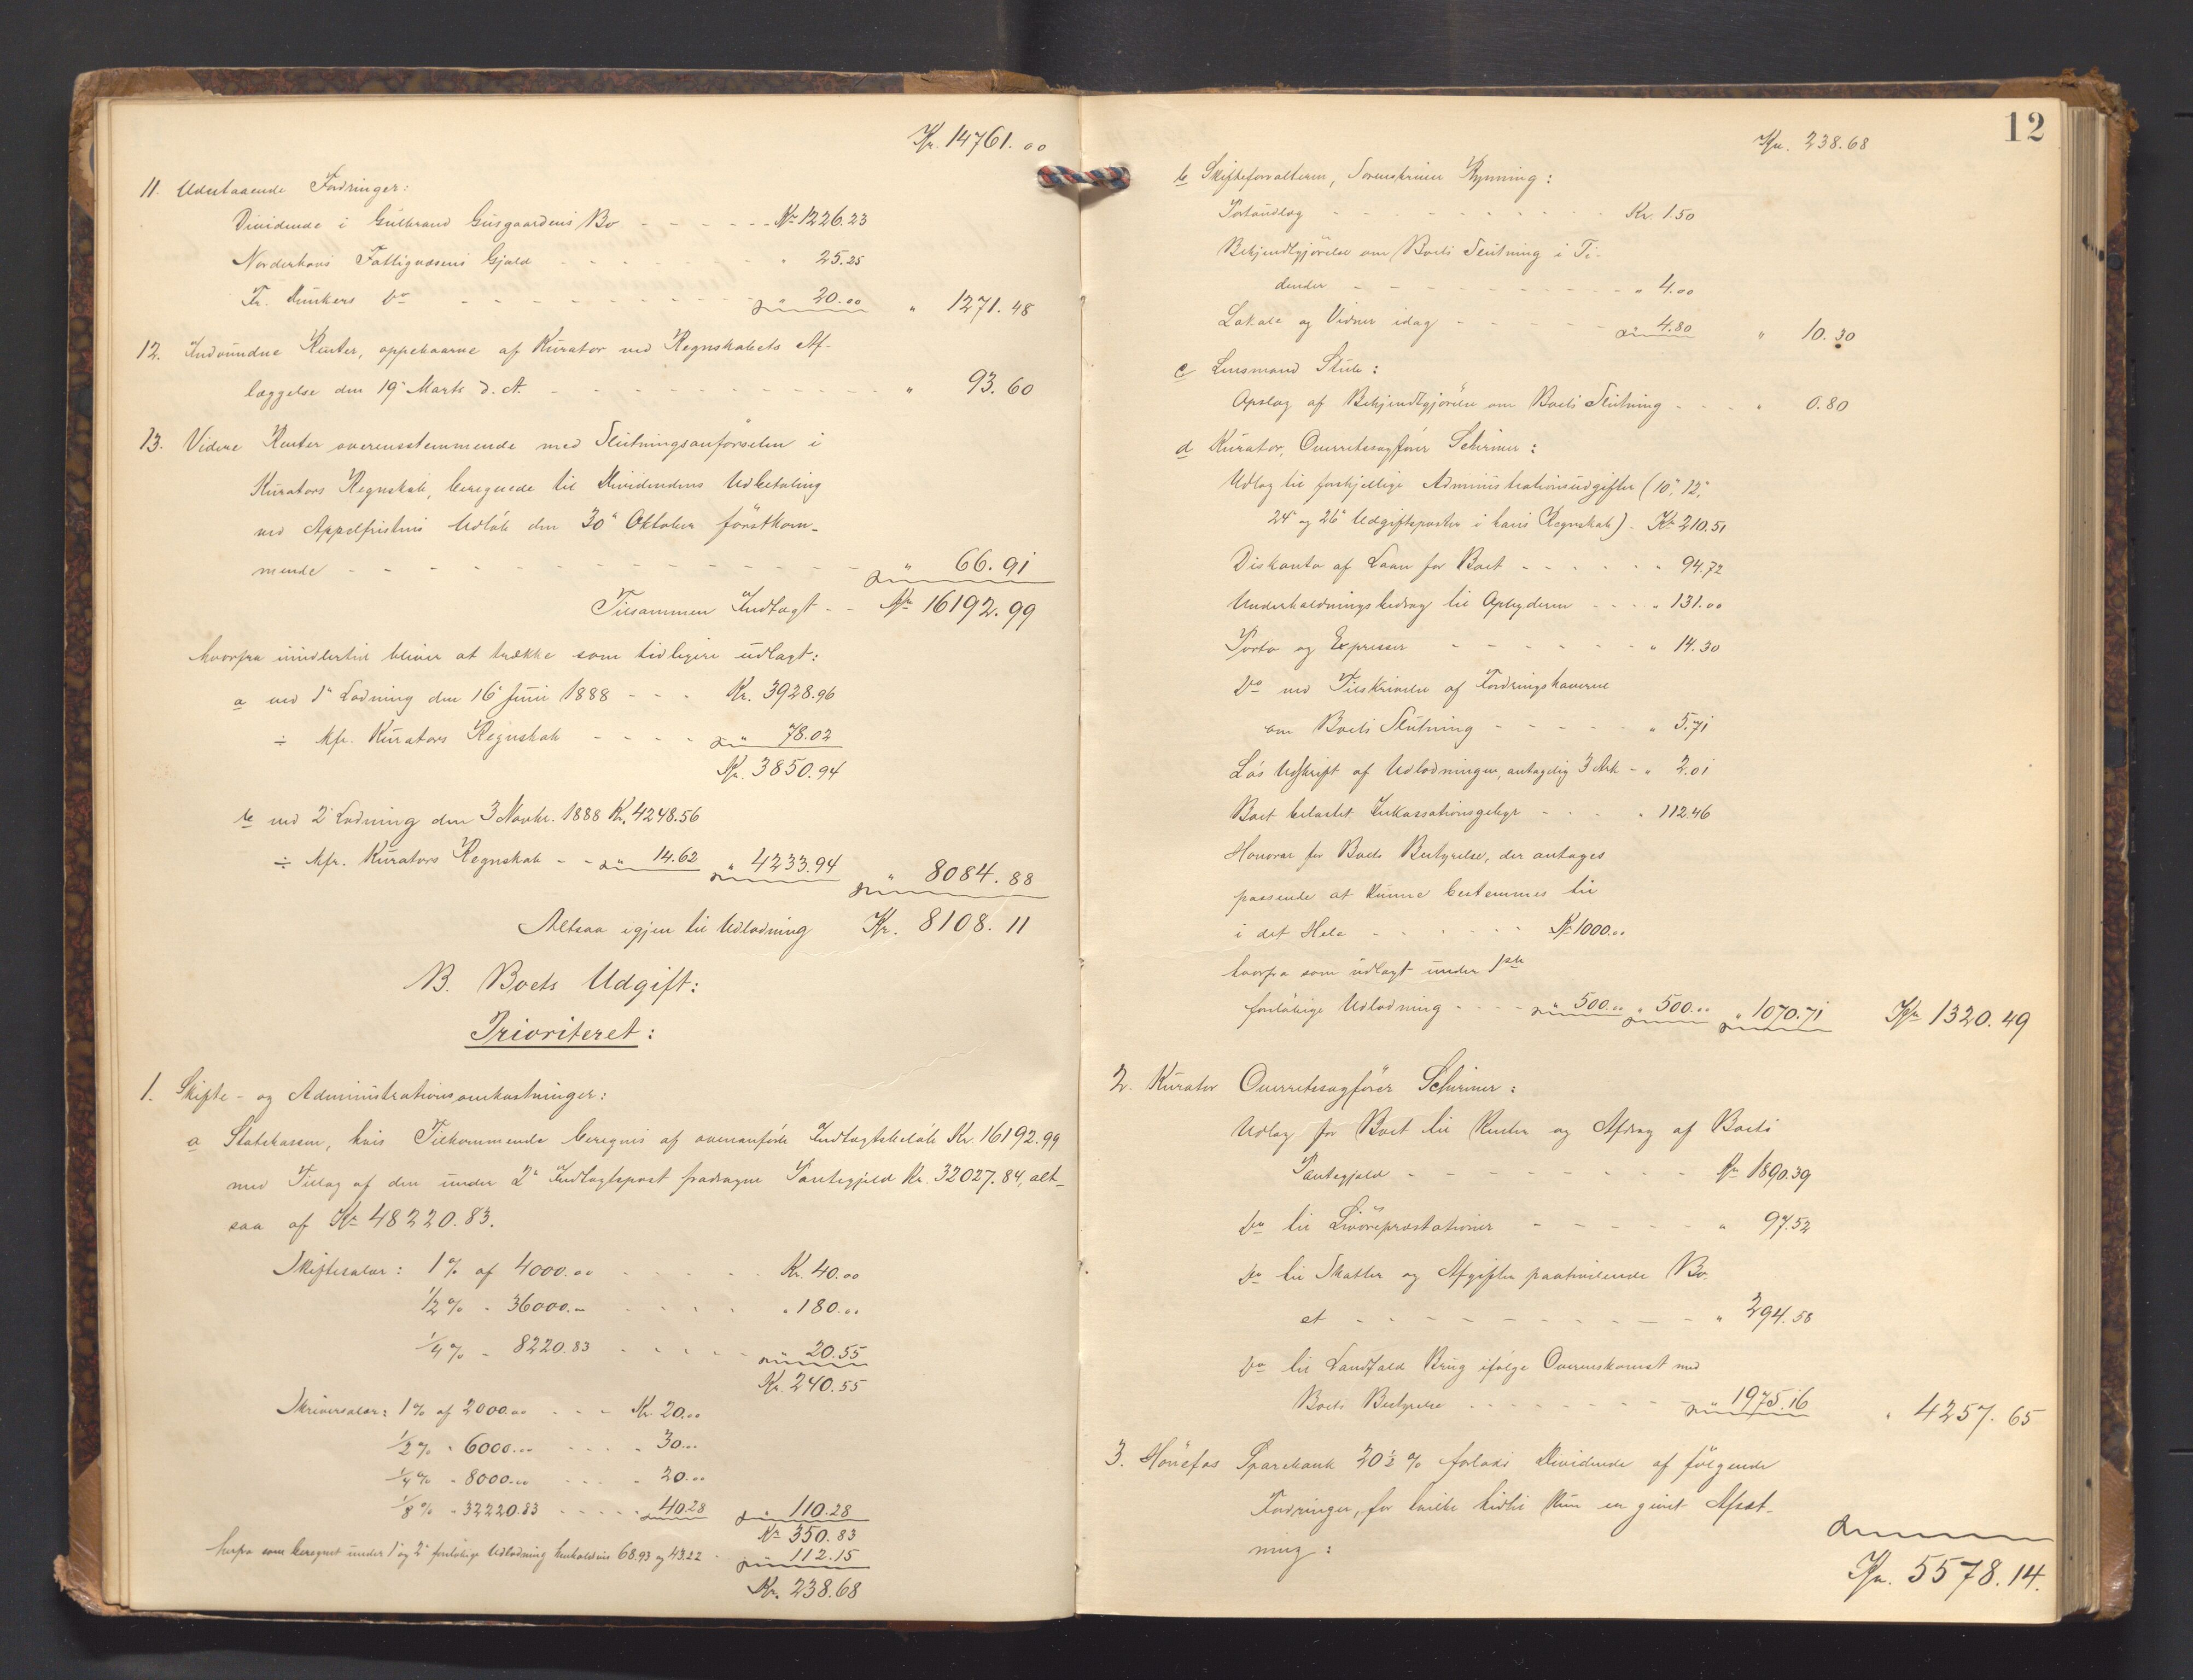 Kr. 14761.00
11. Udestaaende Fordringer:
Dividende i Gulbrand Gusgaardens Bo - - - - - Kr 1226.23
Norderhovs Fattigvæsens Gjæld - - - - - " 25.25
Fr. Aunkers Do - - - - - - - " 20.00 " 1271.48
12. Indvundne Renter, oppebaarne af Kurator ved Regnskabets Af-
læggelse den 19' Marts d. A. - - - - - - " 93.60
13. Videre Renter overensstemmende med Slutningsanførselen i
Kurators Regnskab, beregnede til Dividendens Udbetaling
ved Appelfristens Udløb den 30' Oktober førstkom-
mende - - - - - - - - - " 66.91
Tilsammen Indtægt - - Kr 16192.99
hvorfra imidlertid bliver at trække som tidligere udlagt:
a ved 1' Lodning den 16' Juni 1888 - - - Kr. 3928.96
÷ Kfr. Kurators Regnskab - - - - " 78.02
Kr. 3850.94
b ved 2' Lodning den 3 Novbr. 1888 Kr. 4248.56
÷ Kfr. Kurators Regnskab - - " 14.62 " 4233.94 " 8084.88
Altsaa igjen til Udlodning Kr. 8108.11
B. Boets Udgift:
Prioriteret:
1. Skifte- og Administrationsomkostninger:
a Statskassen, hvis Tilkommende beregnes af ovenanførte Indtægtsbeløb Kr. 16192.99
med Tillæg af den under 2' Indtægtspost fradragne Pantegjæld Kr. 32027.84, alt-
saa af Kr 48220.83.
Skiftesalær: 1 % af 4000.00 - - - - Kr. 40.00
1/2 % " 36000.- - - - - " 180.00
1/4 % " 8220.83 - - - - " 20.55
Kr. 240.55
Skriversalær: 1 % af 2000.00 - - - Kr. 20.00
1/2 % " 6000.00 - - - - " 30.00
1/4 % " 8000.00 - - - " 20.00
1/8 % " 32220.83 - - - - " 40.28 " 110.28
Kr 350.83
herfra som beregnet under 1' og 2' foreløbige Udlodning henholdsvis 68.93 og 43.22 - " 112.15
Kr. 238.68
12
Kr. 238.68
b Skifteforvalteren, Sorenskriver Rynning:
Portoudlæg - - - - - - - - Kr. 1.50
Bekjendtgjørelse om Boets Slutning i Ti-
dender - - - - - - - - " 4.00
Lokale og Vidner idag - - - - - " 4.80 " 10.30
c Lensmand Stub:
Opslag af Bekjendtgjørelse om Boets Slutning - - - " 0.80
d Kurator, Overretssagfører Schriver:
Udlæg til forskjellige Administrationsudgifter (10', 12',
24' og 26' Udgiftsposter i hans Regnskab) - Kr 210.51
Diskonto af Laan for Boet - - - - - " 94.72
Underholdningsbidrag til Opbyderen - - - - " 131.00
Porto og Expresser - - - - - - " 14.30
Do ved Tilskrivelse af Fordringshaverne
om Boets Slutning - - - - - " 5.71
Løs Udskrift af Udlodningen, antagelig 3 Ark - " 2.01
Boet belastet Inkassationsgebyr - - - " 112.46
Honorar for Boets Bestyrelse, der antages
passende at kunne bestemmes til
i det Hele - - - - - - Kr 1000.00
hvorfra som udlagt under 1ste
foreløbige Udlodning - - - - " 500.00 " 500.00 " 1070.71 Kr 1320.49
2. Kurator Overretssagfører Schriver:
Udlæg for Boet til Renter og Afdrag af Boets
Pantegjæld - - - - - - - - Kr 1890.39
Do til Livøreprestationer - - - - - " 97.52
Do til Skatter og Afgifter paahvilende Bo-
et - - - - - - - - - - - " 294.58
Do til Landfald Brug ifølge Overenskomst med
Boets Bestyrelse - - - - - - - - " 1975.16 " 4257.65
3. Hønefos Sparebank 20½ % forlods Dividende af følgende
Fordringer, for hvilke hidtil kun er givet Afsæt-
ning:
Kr. 5578.14.